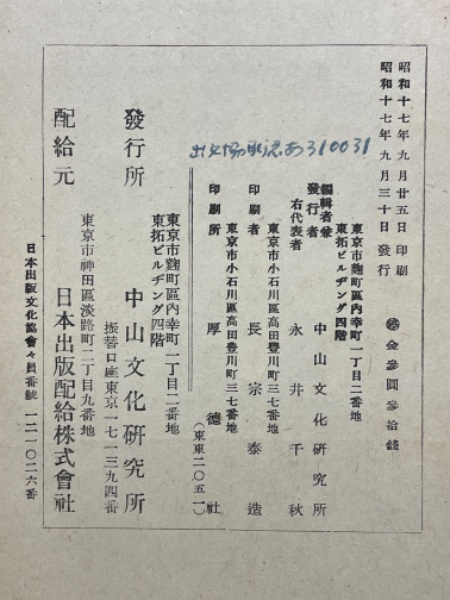 昭和十七年九月廿五日印刷
昭和十七年九月三十日發行
金參圓參拾錢
東京市麴町區內幸町一丁目二番地
東拓ビルヂング四階
編輯者兼
發行者
中山文化硏究所
右代表者
永井千秋
東京市小石川區高田豐川町三七番地
印刷者
長宗泰造
東京市小石川區高田豐川町三七番地
印刷所
厚德社
(東東二〇五一)
出文協承認あ310031
東京市麴町區內幸町一丁目二番地
東拓ビルヂング四階
發行所
中山文化硏究所
振替口座東京一七一三九四番
東京市神田區淡路町二丁目九番地
配給元
日本出版配給株式會社
日本出版文化協會々員番號 一二一〇二六番